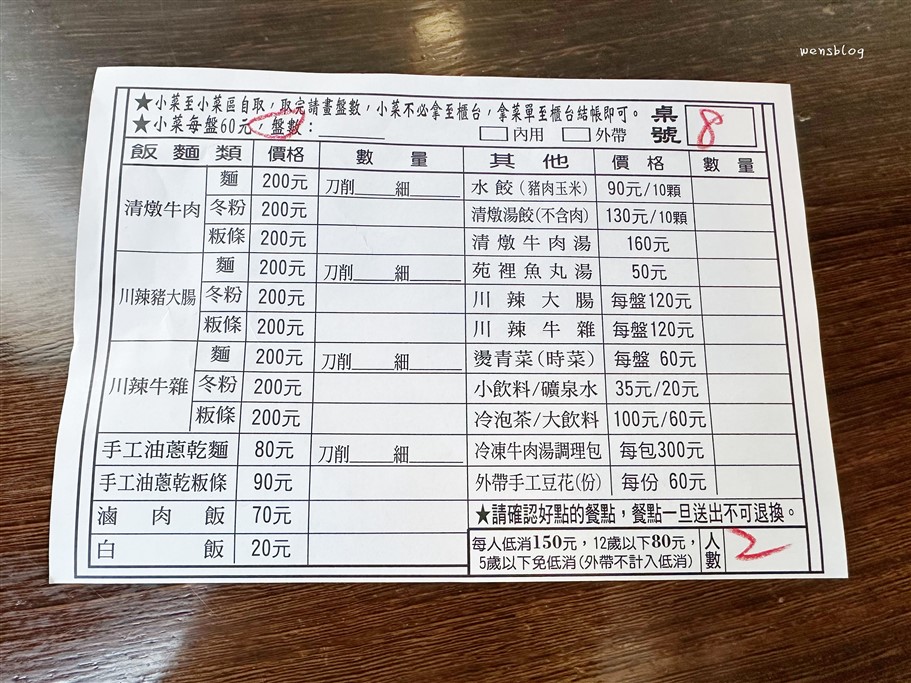 wensblog
★小菜至小菜區自取，取完請畫盤數，小菜不必拿至櫃台，拿菜單至櫃台結帳即可。
★小菜每盤60元，盤數：______ □內用 □外帶
桌號 8
飯麵類 價格 數量 其他 價格 數量
清燉牛肉 麵 200元 刀削____細____ 水餃(豬肉玉米) 90元/10顆
冬粉 200元 清燉湯餃(不含肉) 130元/10顆
粄條 200元 清燉牛肉湯 160元
川辣豬大腸 麵 200元 刀削____細____ 苑裡魚丸湯 50元
冬粉 200元 川辣大腸 每盤120元
粄條 200元 川辣牛雜 每盤120元
川辣牛雜 麵 200元 刀削____細____ 燙青菜(時菜) 每盤 60元
冬粉 200元 小飲料/礦泉水 35元/20元
粄條 200元 冷泡茶/大飲料 100元/60元
手工油蔥乾麵 80元 刀削____細____ 冷凍牛肉湯調理包 每包300元
手工油蔥乾粄條 90元 外帶手工豆花(份) 每份 60元
滷肉飯 70元 ★請確認好點的餐點，餐點一旦送出不可退換。
白飯 20元 每人低消150元，12歲以下80元，
5歲以下免低消(外帶不計入低消) 人數 2